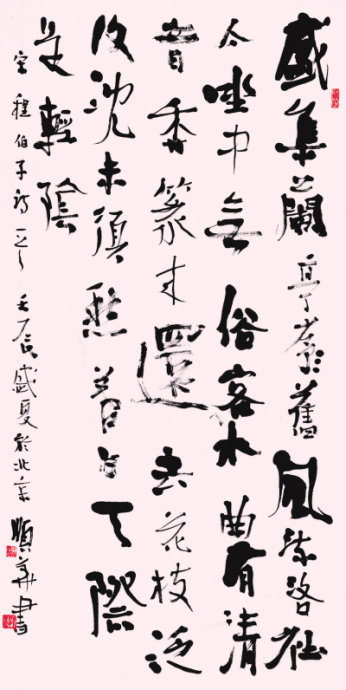 盛集蘭亭舊風流洛社
今坐中無俗客水曲有清
音香篆來還去花枝泛
復沈未須愁暮日天際
是輕陰
宋程伯子詩 壬辰盛夏於北京 順華書